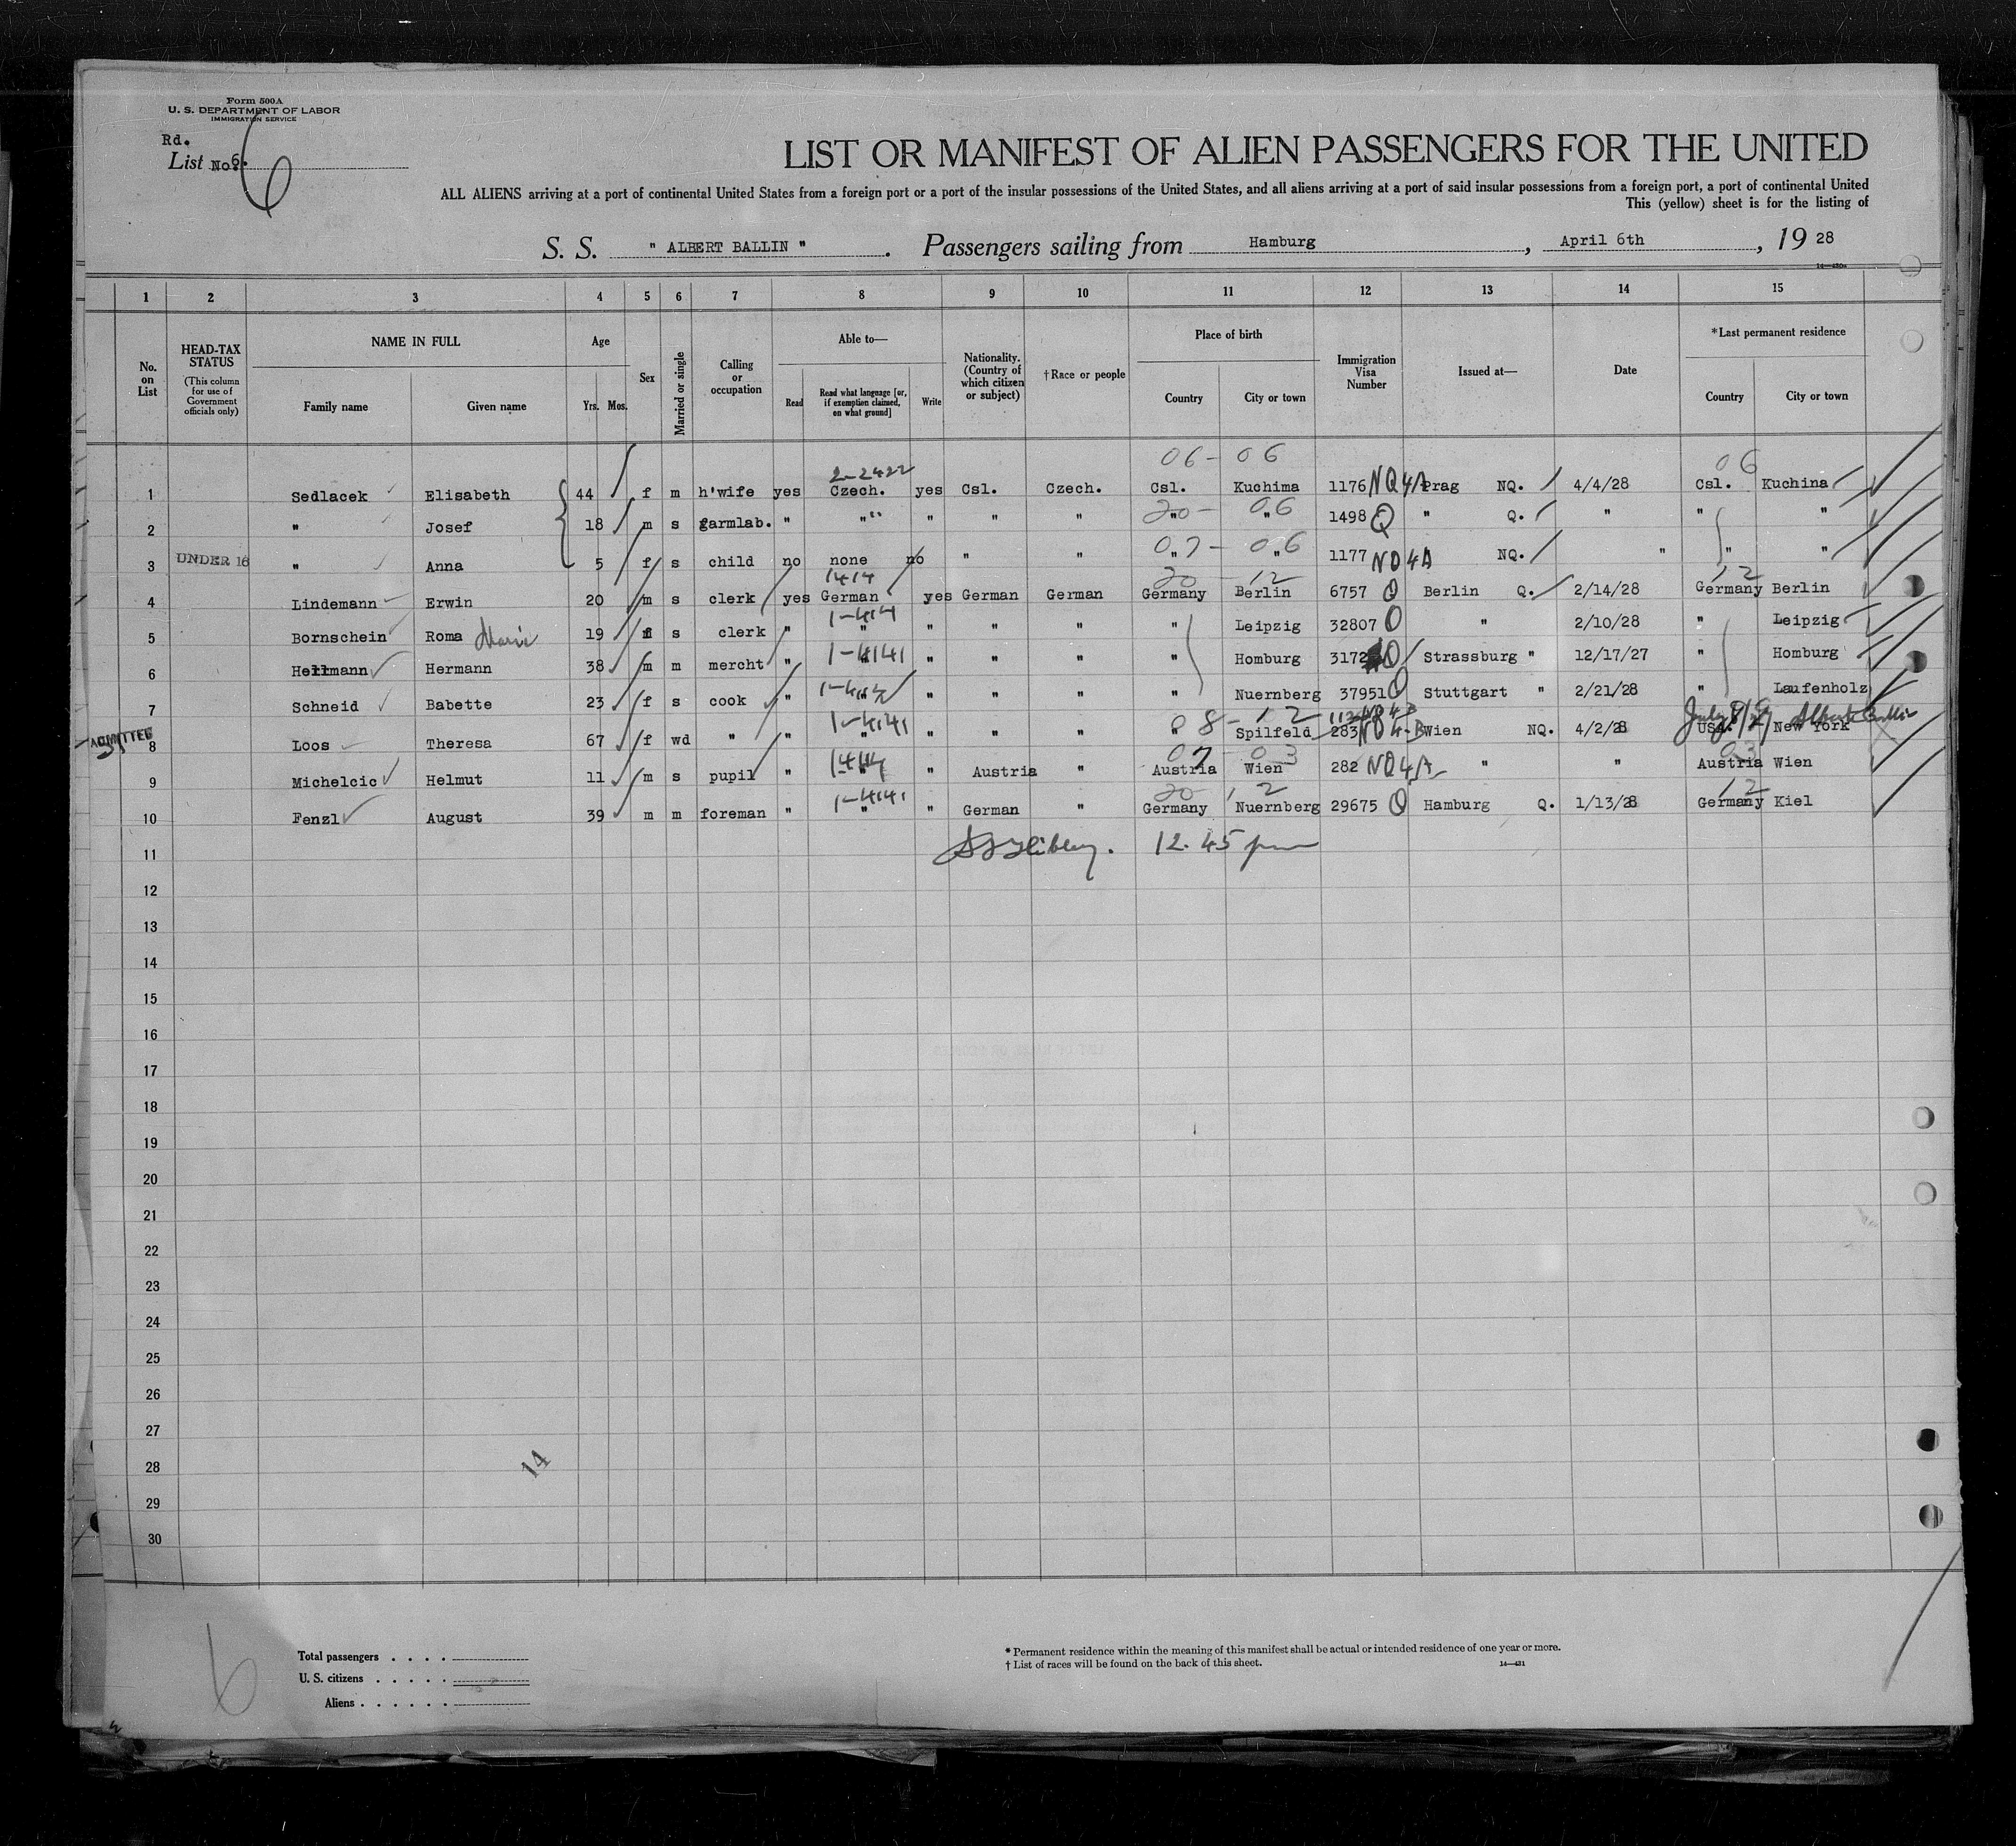 Form 500A
U. S. DEPARTMENT OF LABOR
IMMIGRATION SERVICE
Rd.
List No 6. 6
LIST OR MANIFEST OF ALIEN PASSENGERS FOR THE UNITED
ALL ALIENS arriving at a port of continental United States from a foreign port or a port of the insular possessions of the United States, and all aliens arriving at a port of said insular possessions from a foreign port, a port of continental United
This (yellow) sheet is for the listing of
S. S. " ALBERT BALLIN ". Passengers sailing from Hamburg, April 6th, 19 28
14—430a
1 2 3 4 5 6 7 8 9 10 11 12 13 14 15
No. on List
HEAD-TAX STATUS
(This column for use of Government officials only)
NAME IN FULL
Family name Given name
Age
Yrs. Mos.
Sex
Married or single
Calling or occupation
Able to—
Read Read what language [or, if exemption claimed, on what ground] Write
Nationality. (Country of which citizen or subject)
†Race or people
Place of birth
Country City or town
Immigration Visa Number
Issued at—
Date
*Last permanent residence
Country City or town
2-2422 06 - 06 06
1 Sedlacek Elisabeth 44 f m h'wife yes Czech. yes Csl. Czech. Csl. Kuchima 1176 NQ4A Prag NQ. 4/4/28 Csl. Kuchina
20 - 06
2 " Josef 18 m s farmlab. " " " " " " " 1498 Q " Q. " " "
07 - 06
3 UNDER 16 " Anna 5 f s child no none no " " " " 1177 NQ4A NQ. " " "
1414 20 12 12
4 Lindemann Erwin 20 m s clerk yes German yes German German Germany Berlin 6757 Q Berlin Q. 2/14/28 Germany Berlin
1-414
5 Bornschein Roma Marie 19 f s clerk " " " " " " Leipzig 32807 Q " 2/10/28 " Leipzig
1-4141
6 Hellmann Hermann 38 m m mercht " " " " " " Homburg 3172 Q Strassburg " 12/17/27 " Homburg
7 Schneid Babette 23 f s cook " " " " " " Nuernberg 37951 Q Stuttgart " 2/21/28 " Laufenholz
1-4141 08 - 12 NQ4B July Albert Ballin
ADMITTED
8 Loos Theresa 67 f wd " " " " " " " Spilfeld 283 NQ4-B Wien NQ. 4/2/28 USA. New York
07 - 03 03
9 Michelcic Helmut 11 m s pupil " " " Austria " Austria Wien 282 NQ4A " " Austria Wien
1-4141 20 12 12
10 Fenzl August 39 m m foreman " " " German " Germany Nuernberg 29675 Q Hamburg Q. 1/13/28 Germany Kiel
11 12.45 pm
12
13
14
15
16
17
18
19
20
21
22
23
24
25
26
27
28
29
30
14
6
Total passengers
U. S. citizens
Aliens
* Permanent residence within the meaning of this manifest shall be actual or intended residence of one year or more.
† List of races will be found on the back of this sheet.
14—431